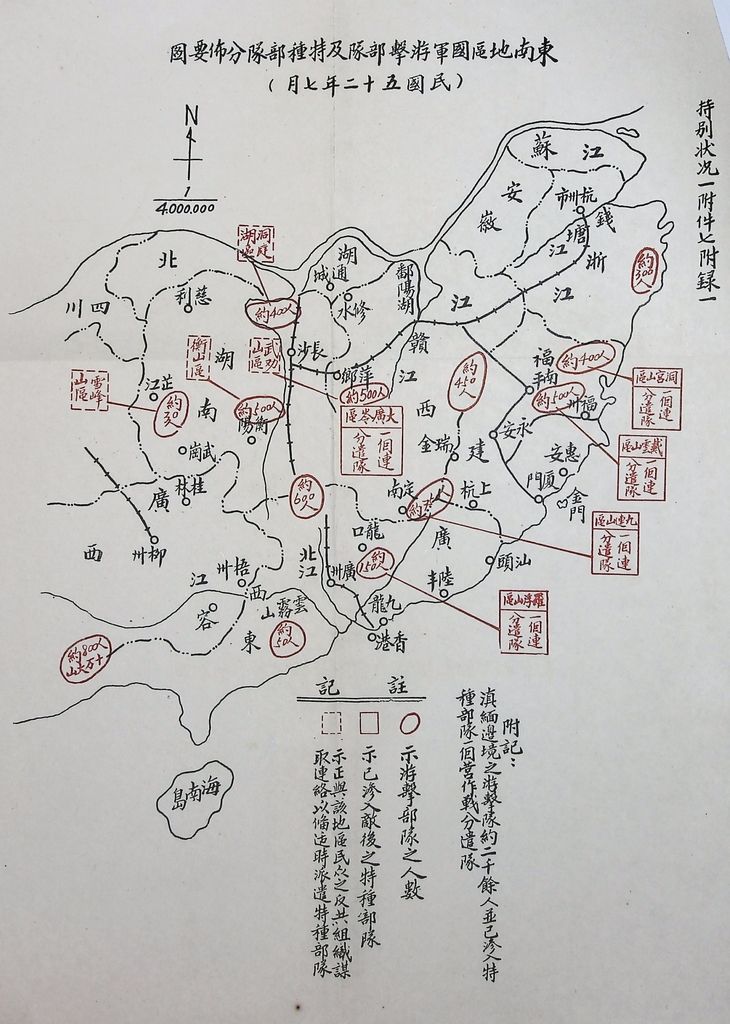 東南地區國軍游擊部隊及特種部隊分佈要圖
(民國五十二年七月)
特別狀況一附件七附录一
N
1
4.000.000
江蘇
安徽
杭州市
錢塘江
浙江
約300人
北
四川
慈利
洞庭湖區
約400人
湖
通城
修水
鄱陽湖
江
贛
江
西
長沙
萍鄉
武功山區
衡山區
雪峰山區
芷江
湖南
約500人
衡陽
武崗
約500人
大廣岺區
一個連
分遣隊
約450人
福建
南平
約400人
洞宮山區
一個連
分遣隊
約500人
福州
戴雲山區
一個連
分遣隊
永安
惠安
廈門
金門
瑞金
上杭
定南
九連山區
一個連
分遣隊
約600人
桂林
廣西
柳州
梧州
西江
北江
龍口
約150人
廣州
廣東
陸丰
汕頭
羅浮山區
一個連
分遣隊
九龍
香港
雲霧山
約50人
容
約800人
十万大山
海南島
註記
示游擊部隊之人數
示已滲入敵後之特種部隊
示正與該地區民众之反共組織謀
取連絡以俻适時派遣特種部隊
附記：
滇緬邊境之游擊隊約二千餘人並已滲入特
種部隊一個營作戰分遣隊